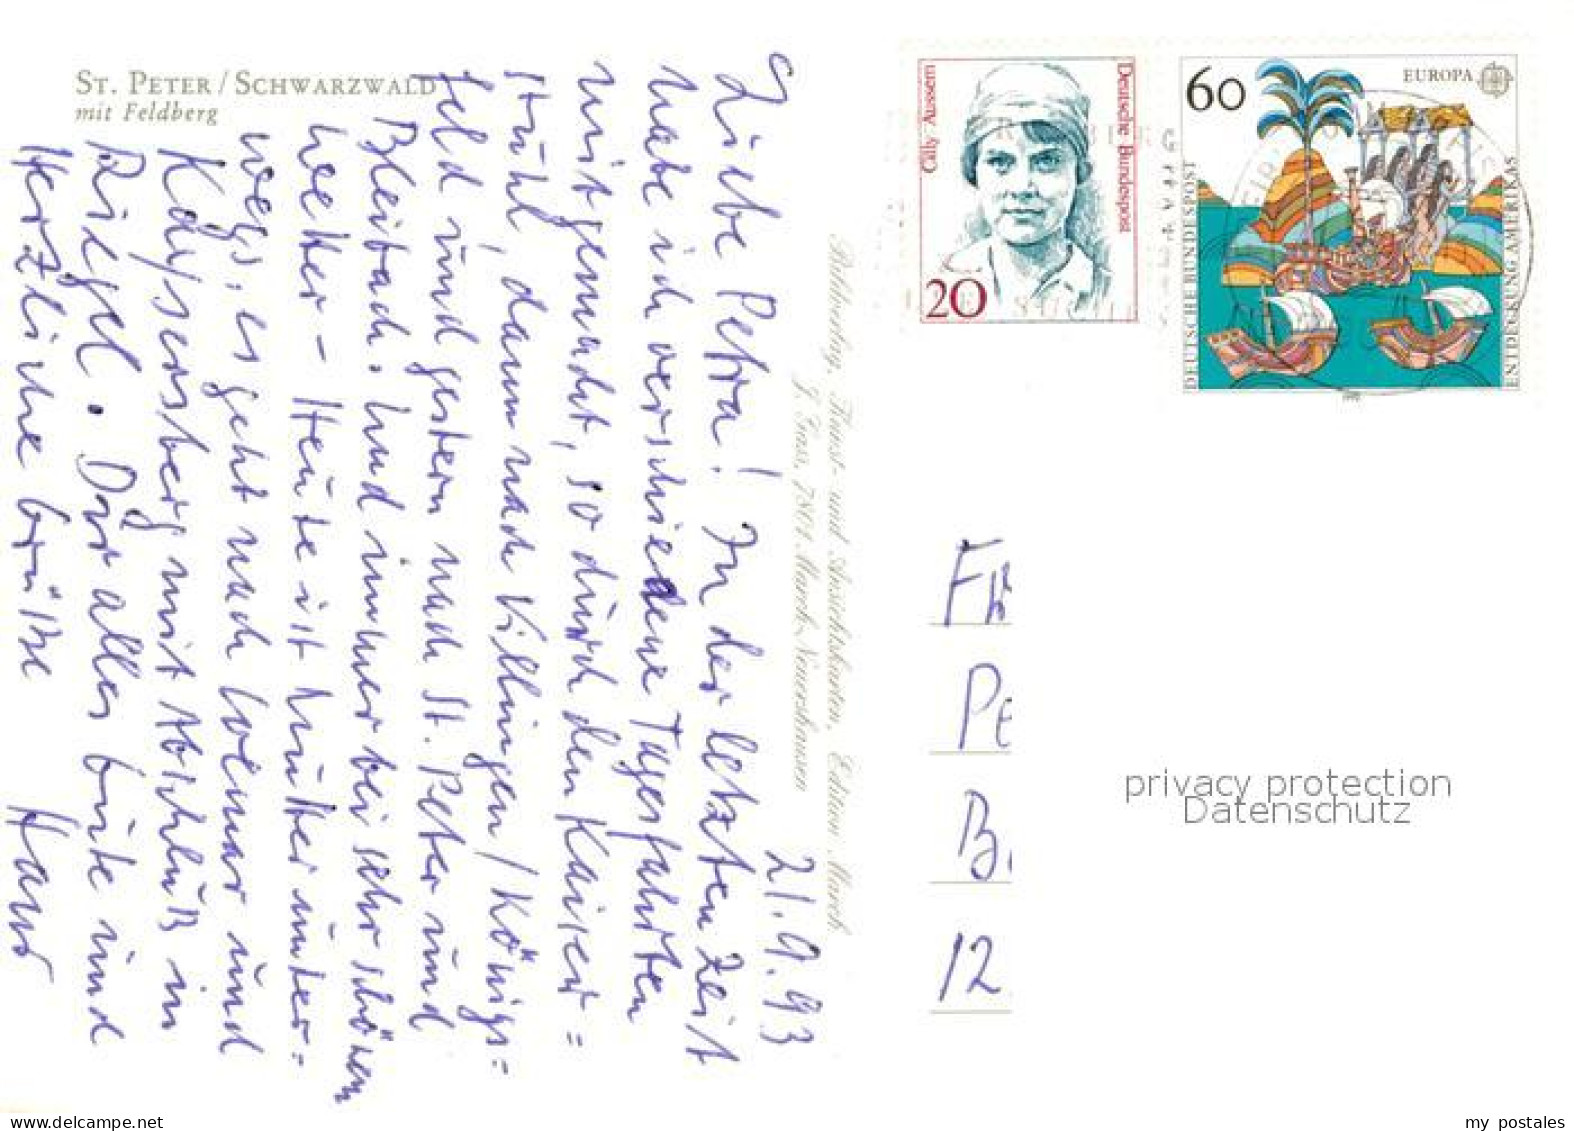 ST. PETER / SCHWARZWALD
mit Feldberg
21.9.93
Liebe Petra! In der letzten Zeit
habe ich verschiedene Tagesfahrten
mitgemacht, so durch den Kaiser=
stuhl, dann nach Villingen / Königs=
feld und gestern nach St. Peter und
Bleibach. Und immer bei sehr schönem
Wetter – Heute ist Mutter unter=
wegs, es geht nach Colmar und
Kaysersberg mit Abschluß in
Riegel. Dir alles Gute und
Herzliche Grüße
Hans
Bildverlag, Kunst- und Ansichtskarten, Edition March
J. Gass, 7801 March-Neuershausen
Cilly Aussem
Deutsche Bundespost
20
60
EUROPA
DEUTSCHE BUNDESPOST
ENTDECKUNG AMERIKAS
Pe
B
12
privacy protection
Datenschutz
my postales